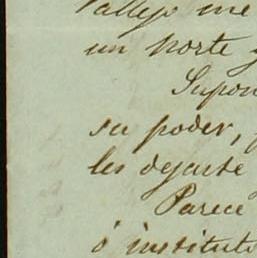 Vallejo me
un norte y
Supon
su poder,
les dejaste
Parece
ó instituto